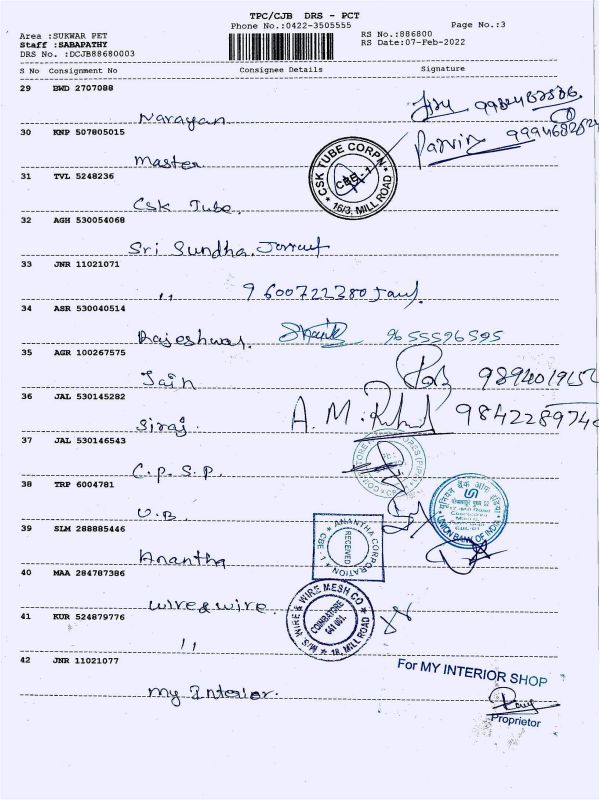 TPC/CJB DRS - PCT
Phone No.:0422-3505555
Page No.:3
Area :SUKWAR PET
Staff :SABAPATHY
DRS No. :DCJB88680003
RS No.:886800
RS Date:07-Feb-2022
S No Consignment No Consignee Details Signature
29 BWD 2707088
Narayan
30 KNP 507805015
Parvin 9994682824
Master
31 TVL 5248236
CSK TUBE CORPN
CBE-1
16/3, MILL ROAD
Csk Tube.
32 AGH 530054068
Sri Sundha.
33 JNR 11021071
,, 9600722380
34 ASR 530040514
Rajeshwar. 9655596595
35 AGR 100267575
Jain
36 JAL 530145282
Siraj. A.M.
37 JAL 530146543
C.P.S.P.
38 TRP 6004781
यूनियन बैंक ऑफ इंडिया
UNION BANK OF INDIA
U.B
39 SLM 288885446
ANANTHA CORPORATION
CBE-1
RECEIVED
Anantha
40 MAA 284787386
M/S. WIRE & WIRE MESH CO
COIMBATORE
641 001.
18, MILL ROAD
wire & wire
41 KUR 524879776
,,
42 JNR 11021077
For MY INTERIOR SHOP
my Interior.
Proprietor